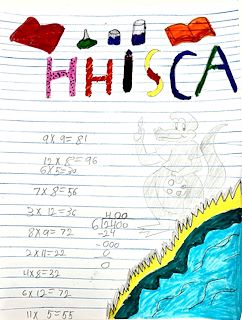 HHISCA
9 x 9 = 81
12 x 8 = 96
6 x 5 = 30
7 x 8 = 56
3 x 12 = 36
8 x 9 = 72
2 x 11 = 22
4 x 8 = 32
6 x 12 = 72
11 x 5 = 55
400
6)2400
-24
-000
0
0